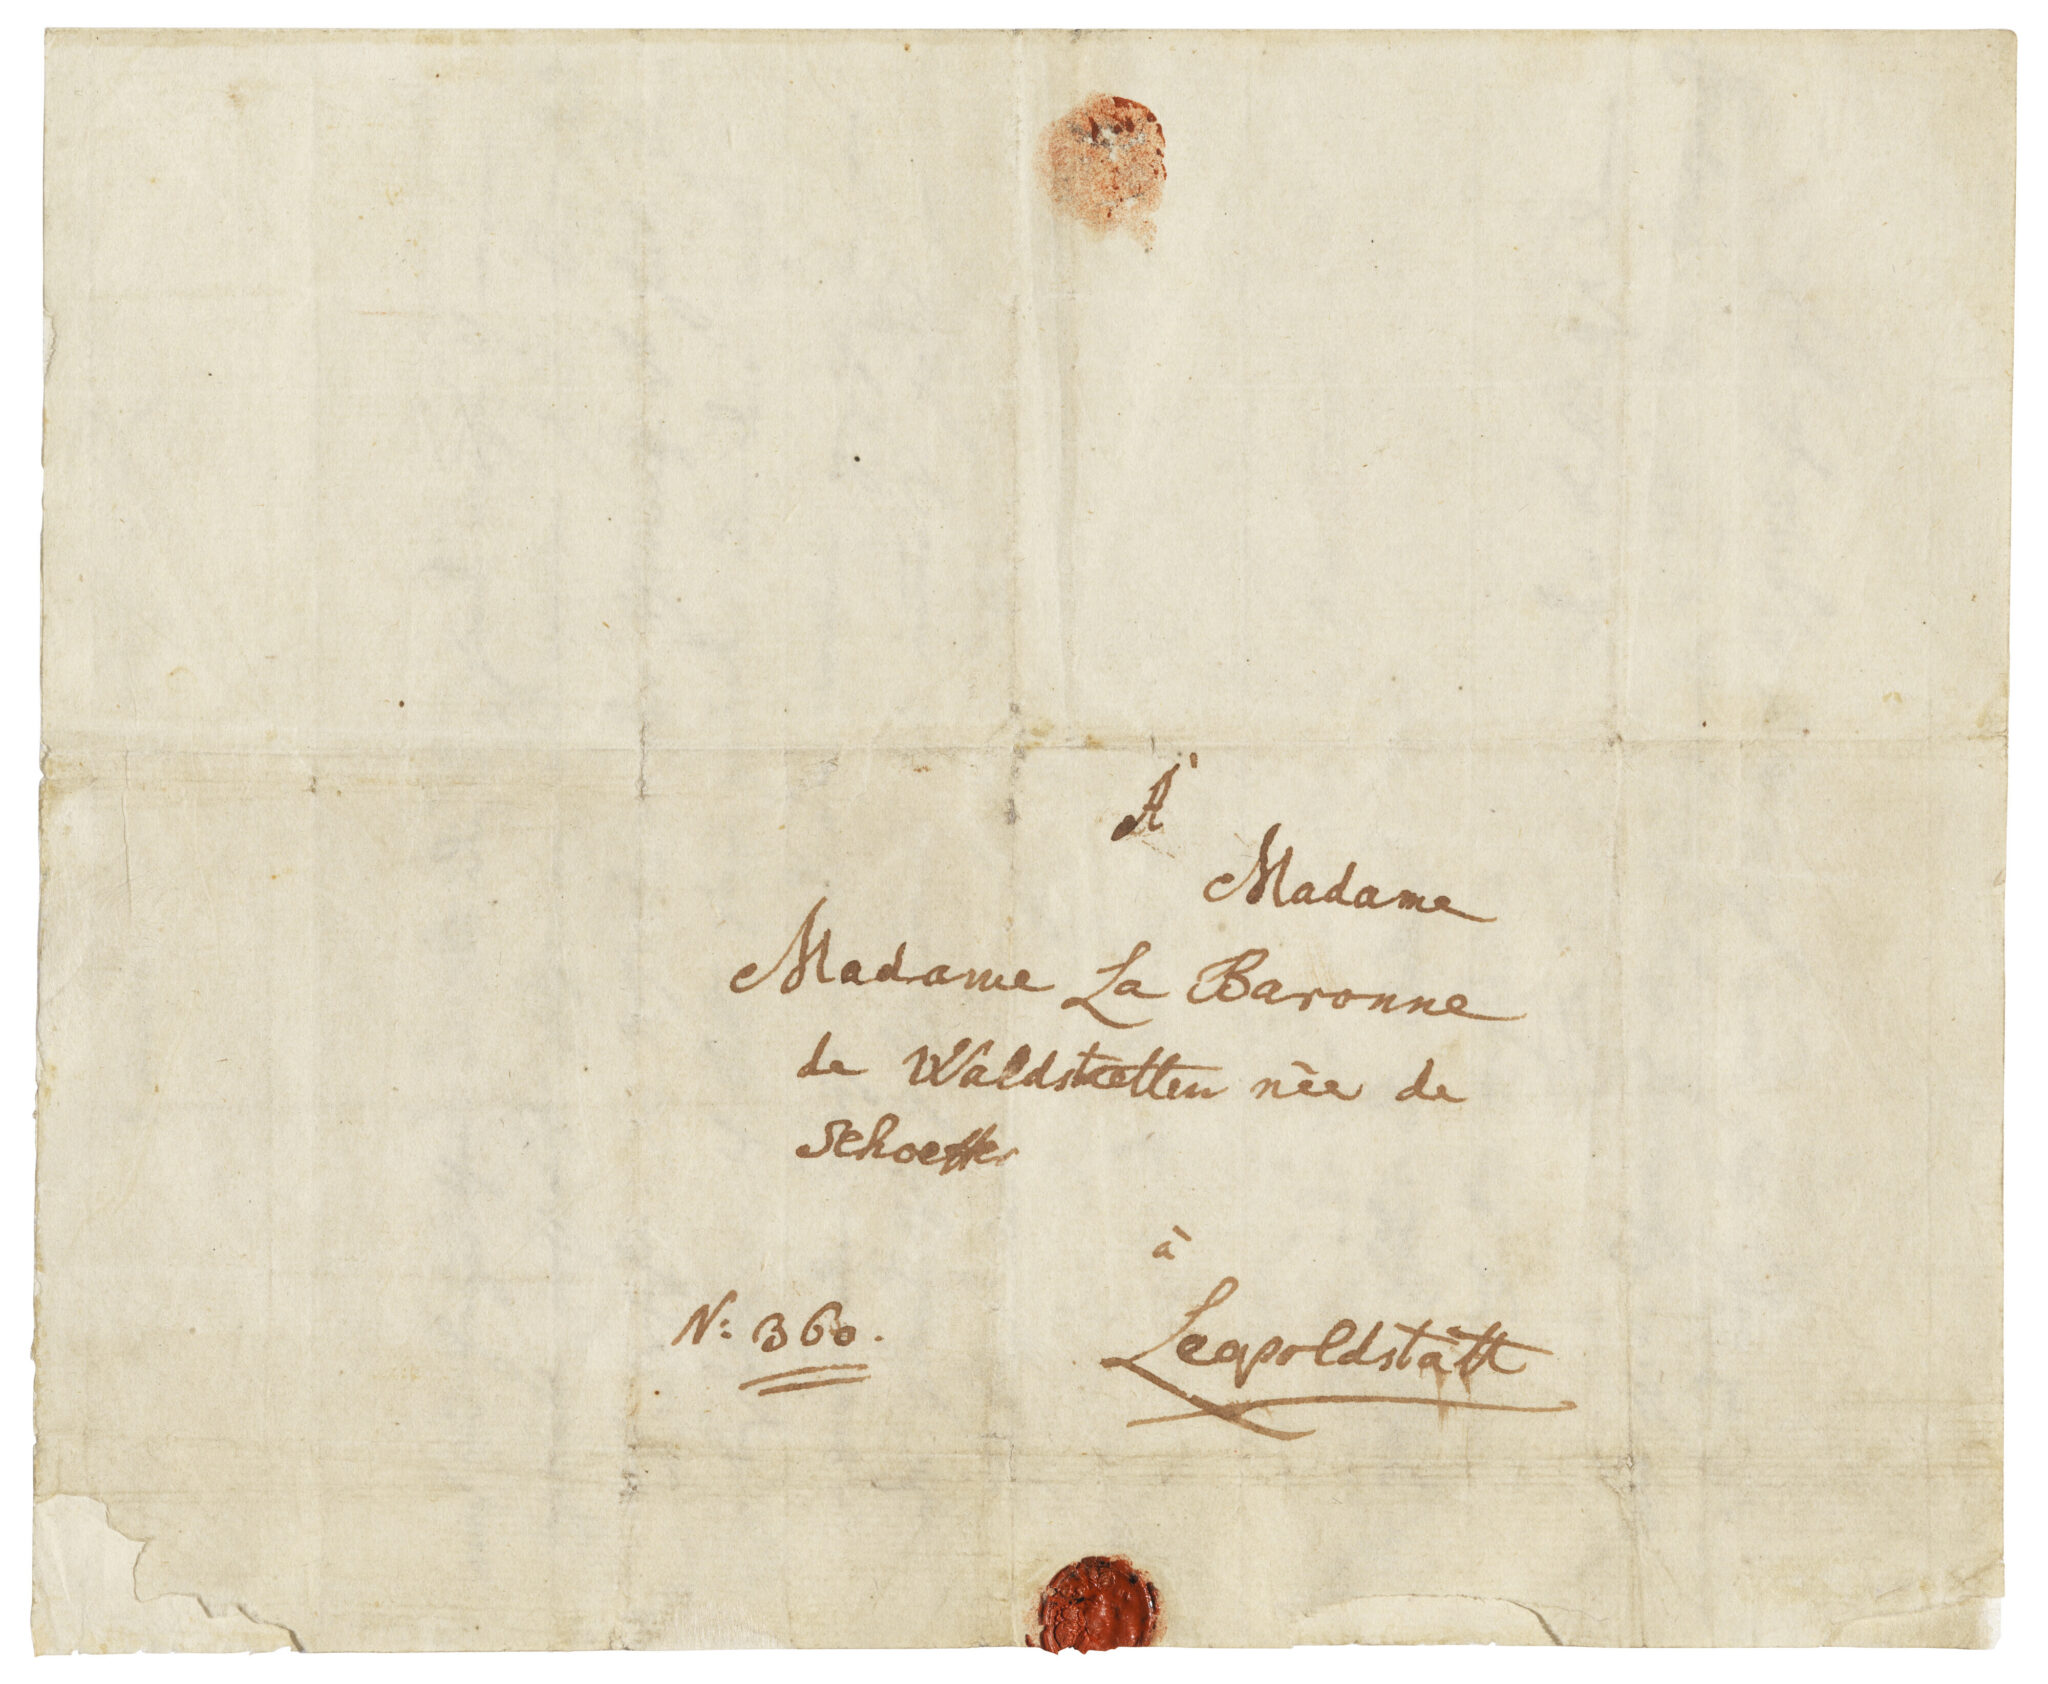 À
Madame
Madame La Baronne
de Waldstætten née de
Schoeffer
à
Leopoldstätt
N: 360.